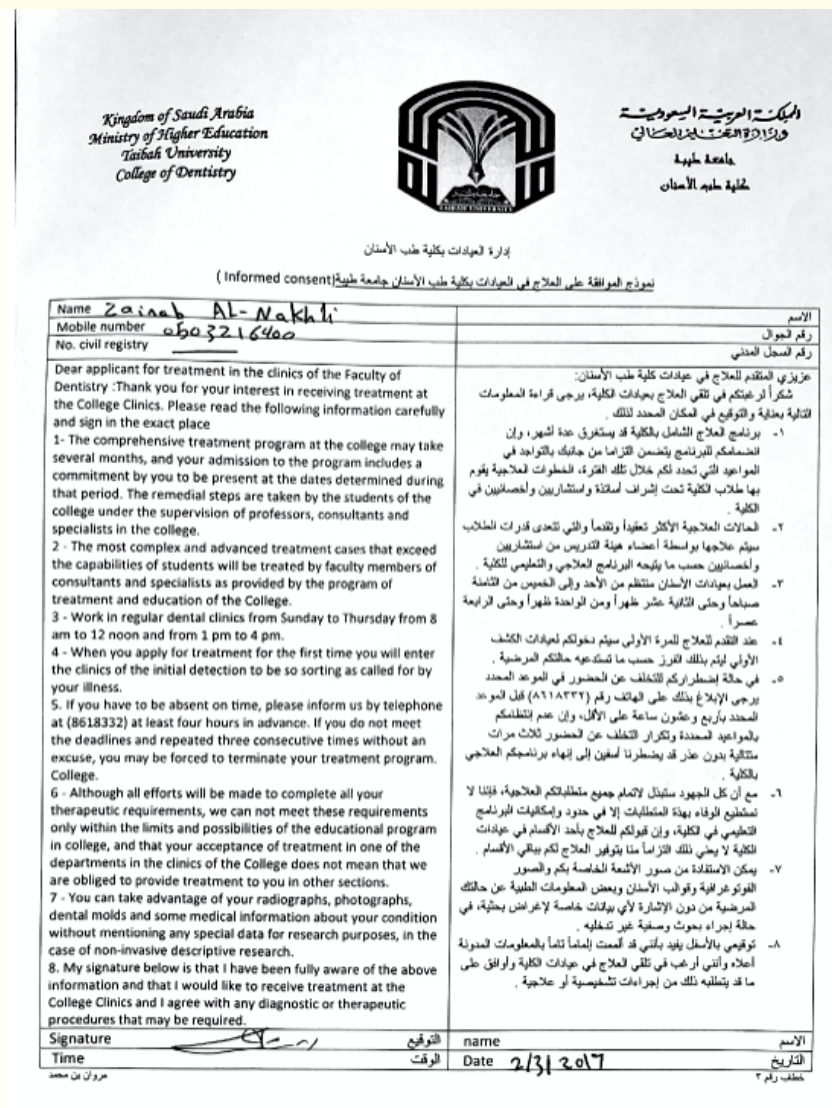 Kingdom of Saudi Arabia
Ministry of Higher Education
Taibah University
College of Dentistry
المملكة العربية السعودية
وزارة التعليم العالي
جامعة طيبة
كلية طب الأسنان
TAIBAH UNIVERSITY
إدارة العيادات بكلية طب الأسنان
نموذج الموافقة على العلاج في العيادات بكلية طب الأسنان جامعة طيبة (Informed consent)
Name Zainab AL-Nakhli
الاسم
Mobile number 0503216400
رقم الجوال
No. civil registry
رقم السجل المدني
Dear applicant for treatment in the clinics of the Faculty of
Dentistry :Thank you for your interest in receiving treatment at
the College Clinics. Please read the following information carefully
and sign in the exact place
1- The comprehensive treatment program at the college may take
several months, and your admission to the program includes a
commitment by you to be present at the dates determined during
that period. The remedial steps are taken by the students of the
college under the supervision of professors, consultants and
specialists in the college.
2 - The most complex and advanced treatment cases that exceed
the capabilities of students will be treated by faculty members of
consultants and specialists as provided by the program of
treatment and education of the College.
3 - Work in regular dental clinics from Sunday to Thursday from 8
am to 12 noon and from 1 pm to 4 pm.
4 - When you apply for treatment for the first time you will enter
the clinics of the initial detection to be so sorting as called for by
your illness.
5. If you have to be absent on time, please inform us by telephone
at (8618332) at least four hours in advance. If you do not meet
the deadlines and repeated three consecutive times without an
excuse, you may be forced to terminate your treatment program.
College.
6 - Although all efforts will be made to complete all your
therapeutic requirements, we can not meet these requirements
only within the limits and possibilities of the educational program
in college, and that your acceptance of treatment in one of the
departments in the clinics of the College does not mean that we
are obliged to provide treatment to you in other sections.
7 - You can take advantage of your radiographs, photographs,
dental molds and some medical information about your condition
without mentioning any special data for research purposes, in the
case of non-invasive descriptive research.
8. My signature below is that I have been fully aware of the above
information and that I would like to receive treatment at the
College Clinics and I agree with any diagnostic or therapeutic
procedures that may be required.
عزيزي المتقدم للعلاج في عيادات كلية طب الأسنان:
شكراً لرغبتكم في تلقي العلاج بعيادات الكلية، يرجى قراءة المعلومات
التالية بعناية والتوقيع في المكان المحدد لذلك .
١- برنامج العلاج الشامل بالكلية قد يستغرق عدة أشهر، وإن
انضمامكم للبرنامج يتضمن التزاما من جانبك بالتواجد في
المواعيد التي تحدد لكم خلال تلك الفترة، الخطوات العلاجية يقوم
بها طلاب الكلية تحت إشراف أساتذة واستشاريين وأخصائيين في
الكلية .
٢- الحالات العلاجية الأكثر تعقيداً وتقدماً والتي تتعدى قدرات الطلاب
سيتم علاجها بواسطة أعضاء هيئة التدريس من استشاريين
وأخصائيين حسب ما يتيحه البرنامج العلاجي والتعليمي للكلية .
٣- العمل بعيادات الأسنان منتظم من الأحد وإلى الخميس من الثامنة
صباحاً وحتى الثانية عشر ظهراً ومن الواحدة ظهراً وحتى الرابعة
عصراً .
٤- عند التقدم للعلاج للمرة الأولى سيتم دخولكم لعيادات الكشف
الأولي ليتم بذلك الفرز حسب ما تستدعيه حالتكم المرضية .
٥- في حالة إضطراركم للتخلف عن الحضور في الموعد المحدد
يرجى الإبلاغ بذلك على الهاتف رقم (٨٦١٨٣٣٢) قبل الموعد
المحدد بأربع وعشون ساعة على الأقل، وإن عدم إنتظامكم
بالمواعيد المحددة وتكرار التخلف عن الحضور ثلاث مرات
متتالية بدون عذر قد يضطرنا آسفين إلى إنهاء برنامجكم العلاجي
بالكلية .
٦- مع أن كل الجهود ستبذل لاتمام جميع متطلباتكم العلاجية، فإننا لا
نستطيع الوفاء بهذة المتطلبات إلا في حدود وإمكانيات البرنامج
التعليمي في الكلية، وإن قبولكم للعلاج بأحد الأقسام في عيادات
الكلية لا يعني ذلك التزاماً منا بتوفير العلاج لكم بباقي الأقسام .
٧- يمكن الاستفادة من صور الأشعة الخاصة بكم والصور
الفوتوغرافية وقوالب الأسنان وبعض المعلومات الطبية عن حالتك
المرضية من دون الإشارة لأي بيانات خاصة لإغراض بحثية، في
حالة إجراء بحوث وصفية غير تدخليه .
٨- توقيعي بالأسفل يفيد بأنني قد ألممت إلماماً تاماً بالمعلومات المدونة
أعلاه وأنني أرغب في تلقي العلاج في عيادات الكلية وأوافق على
ما قد يتطلبه ذلك من إجراءات تشخيصية أو علاجية .
Signature التوقيع
name الاسم
Time الوقت
Date 2/3/2017 التاريخ
مروان بن محمد